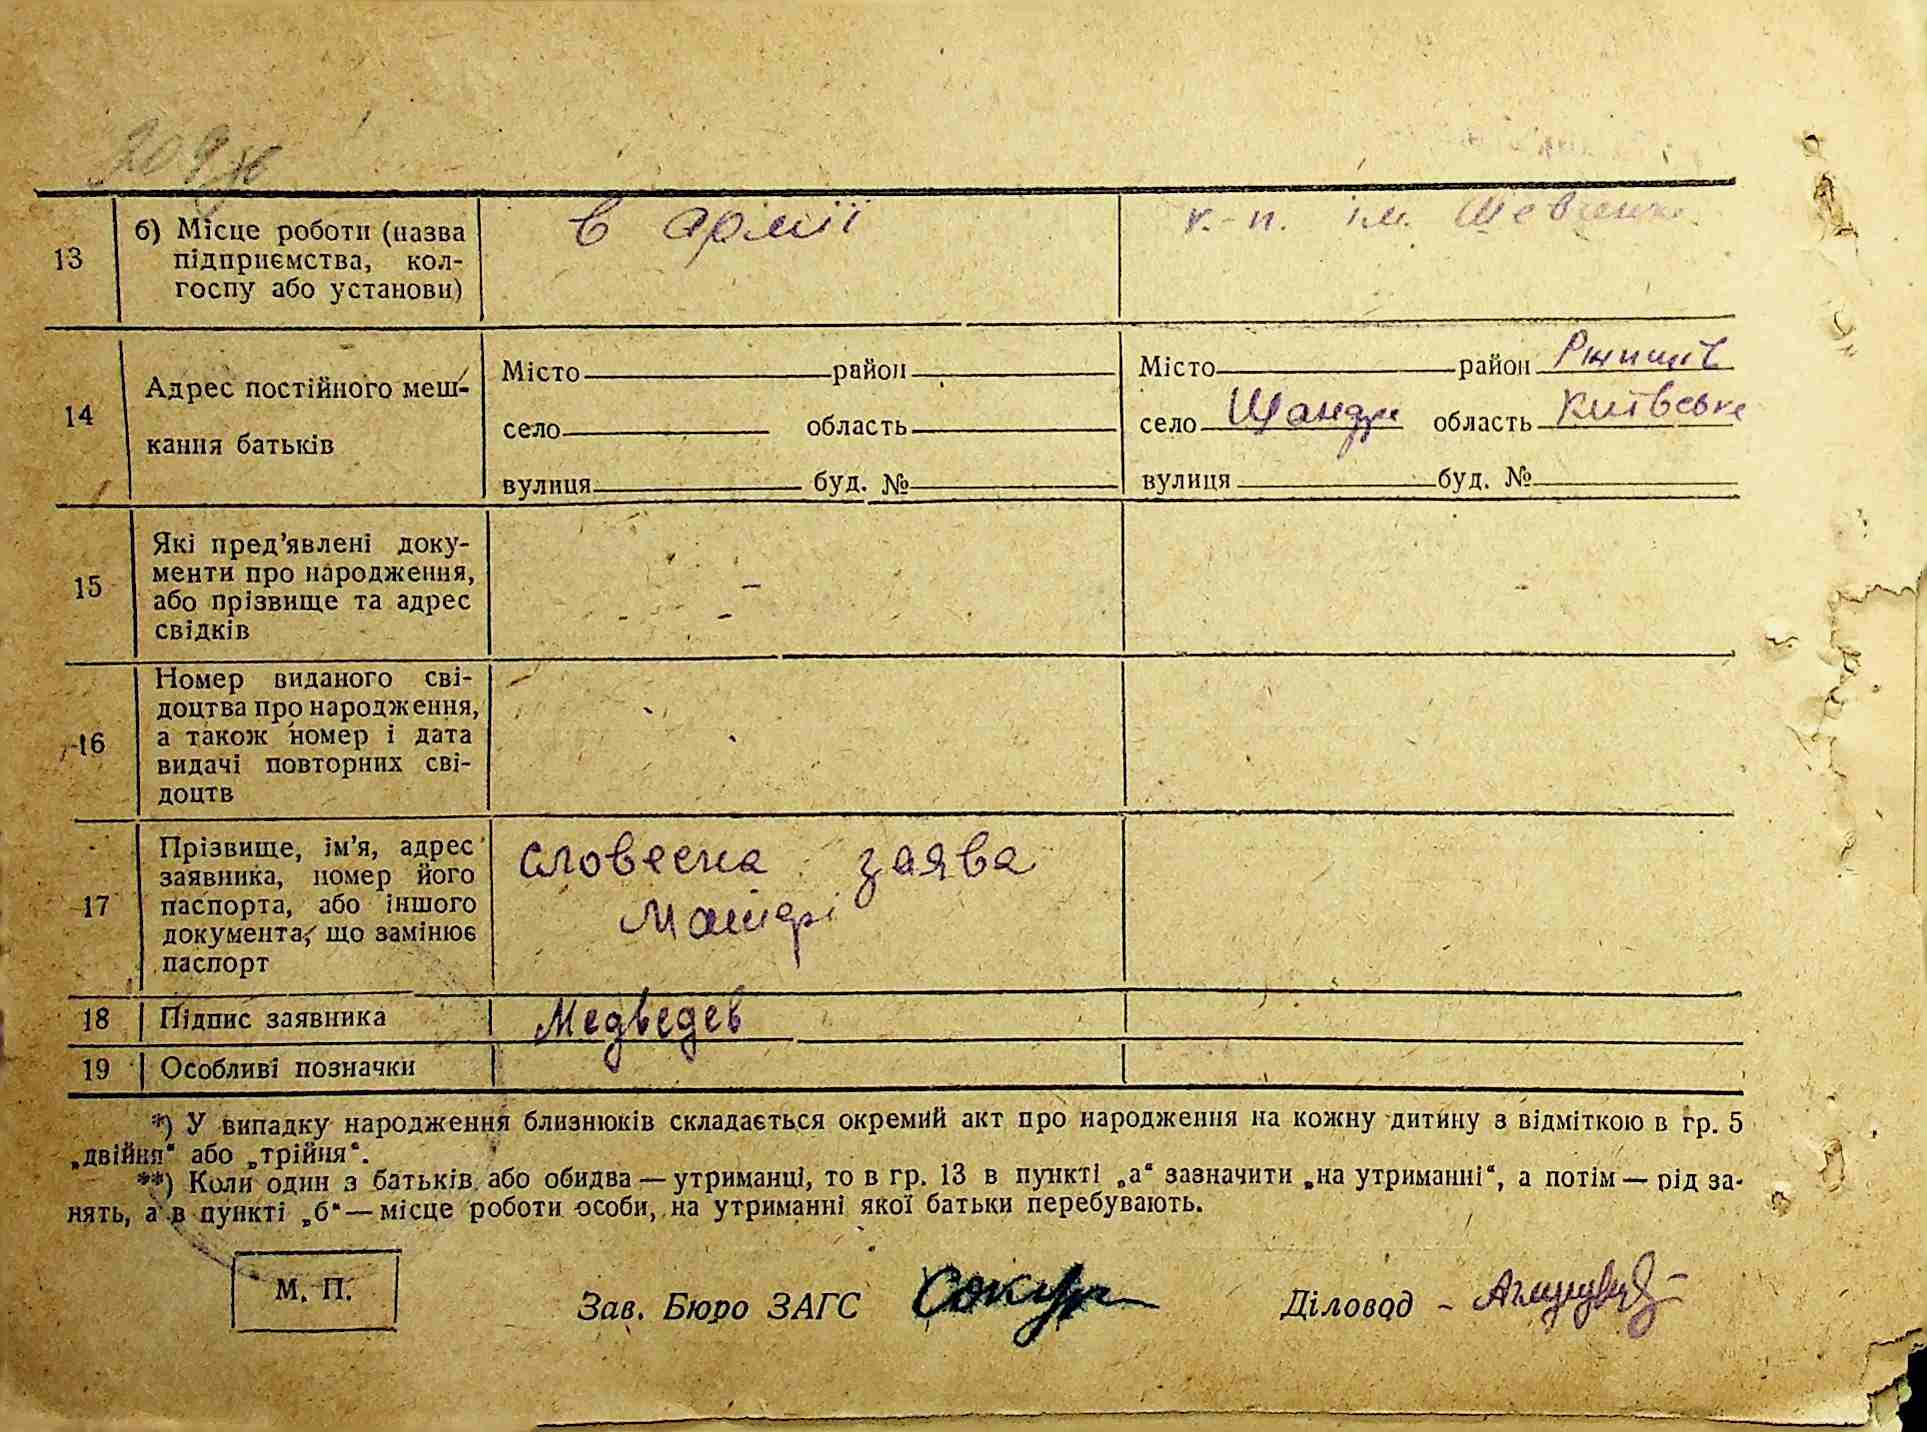 13
б) Місце роботи (назва
підприємства, кол-
госпу або установи)
в армії
к.-п. ім. Шевченка
14
Адрес постійного меш-
кання батьків
Місто район
село область
вулиця буд. №
Місто район Ржищів
село Шандри область Київське
вулиця буд. №
15
Які пред’явлені доку-
менти про народження,
або прізвище та адрес
свідків
16
Номер виданого сві-
доцтва про народження,
а також номер і дата
видачі повторних сві-
доцтв
17
Прізвище, ім’я, адрес
заявника, номер його
паспорта, або іншого
документа, що замінює
паспорт
словесна заява
Матері
18
Підпис заявника
Медведев
19
Особливі позначки
*) У випадку народження близнюків складається окремий акт про народження на кожну дитину з відміткою в гр. 5
„двійня“ або „трійня“.
**) Коли один з батьків або обидва — утриманці, то в гр. 13 в пункті „а“ зазначити „на утриманні“, а потім — рід за-
нять, а в пункті „б“ — місце роботи особи, на утриманні якої батьки перебувають.
М. П.
Зав. Бюро ЗАГС Сокур
Діловод